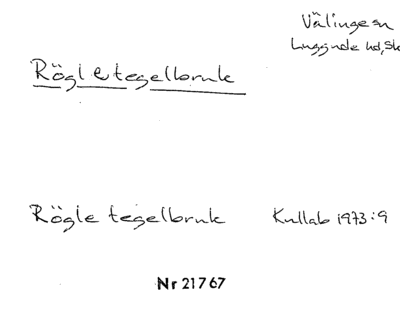 Välinge sn
Luggude hd, Sk
Rögle tegelbruk
Rögle tegelbruk Kullab 1973:9
Nr 21767